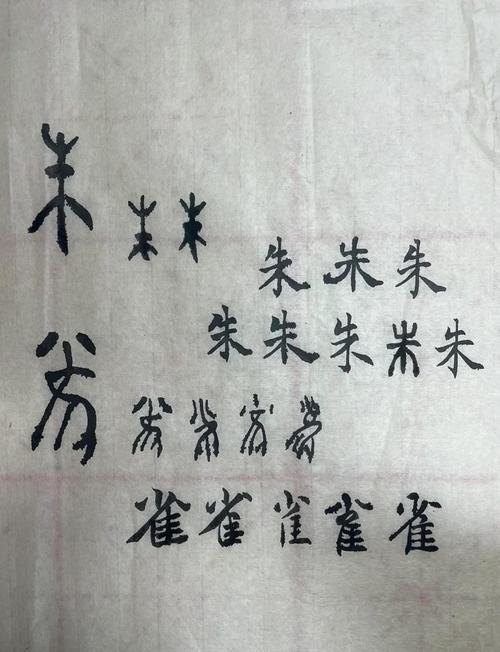 朱 朱 朱
朱 朱 朱
朱 朱 朱 朱 朱
雀 雀 雀 雀 雀
雀 雀 雀 雀 雀